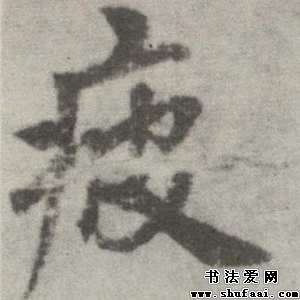 疲
书法爱网
www.shufaai.com